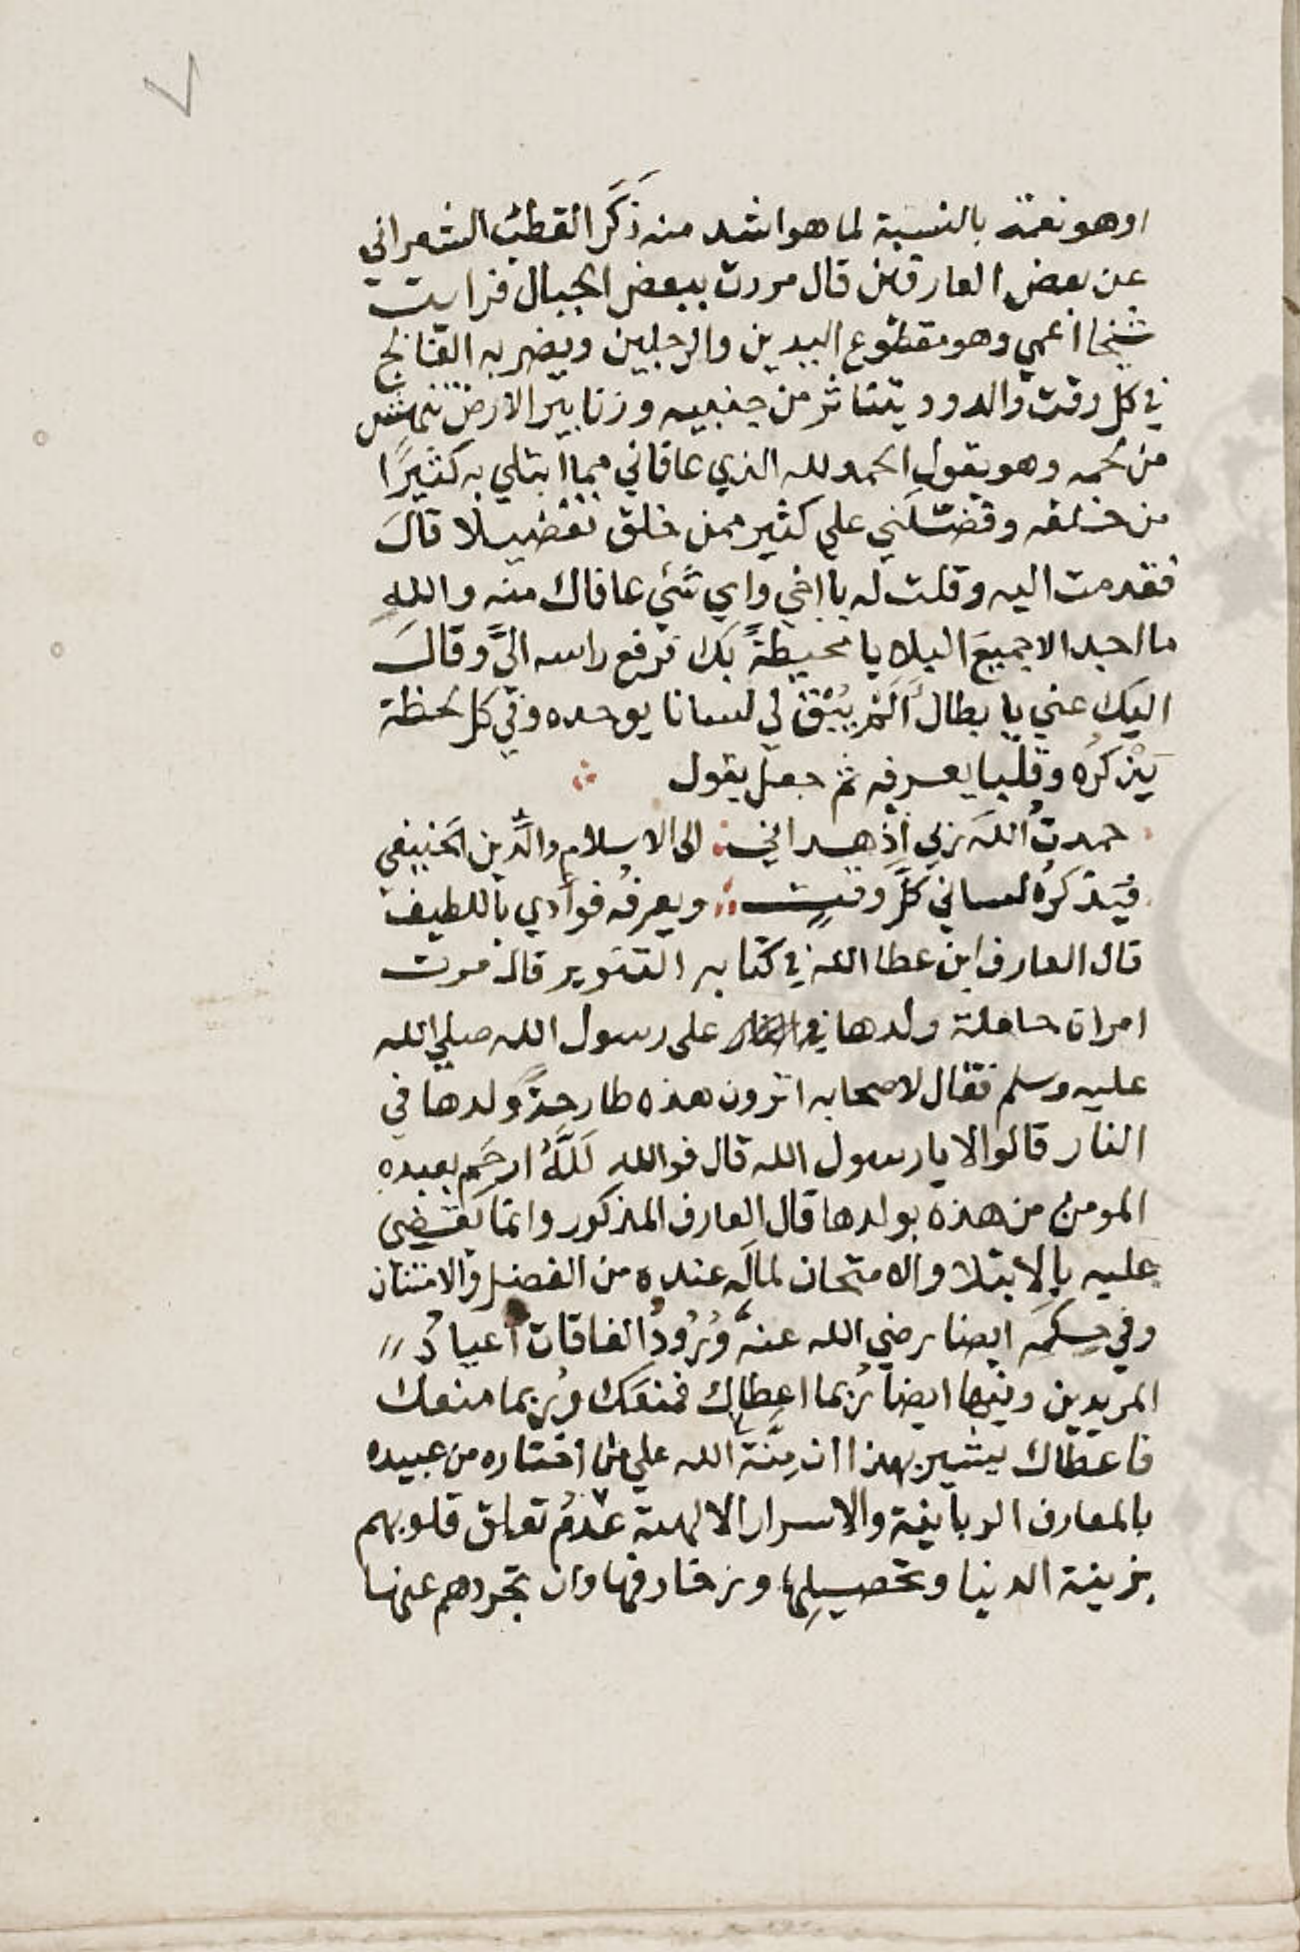 ٧
او هو نعمة بالنسبة لما هو اشد منه ذَكَرَ القطبُ الشعراني
عن بعض العارفين قال مررت ببعض الجبال فرايت
شيخا اعمي وهو مقطوع اليدين والرجلين ويضربه الفالج
في كل وقت والدود يتناثر من جنبيه وزنابير الارض تنهش
من لحمه وهو يقول الحمد لله الذي عافاني مما ابتلي به كثيرًا
من خلقه وفضّلَني علي كثير ممن خلق تفضيلا قال
فقدمت اليه وقلت له يا اخي واي شَئي عافاك منه واللهِ
ما اجد الا جميعَ البلايا محيطةً بك فرفع راسه اليَّ وقال
اليك عني يا بطال أَلَمْ يُبْقِ لي لسانا يوحده وفي كل لحظة
يَذكرُه وقلبا يعرفه ثم جعل يقول
حمدتُ اللهَ ربي إذ هداني الى الاسلامِ والدِّينِ الحَنيفي
فيَذكرُه لساني كلَّ وقتٍ ويعرفُه فوأدي باللطيف
قال العارف ابن عطا الله في كتابه التنوير قال مرت
امراة حاملة ولدها على رسول الله صلي الله
عليه وسلم فقال لاصحابه اترون هذه طارحةً ولدها في
النار قالوا لا يا رسول الله قال فوالله لَلَّهُ ارحَم بعبدهِ
المومن من هذه بولدها قال العارف المذكور وانما يَقضي
عليه بالابتلا والامتحان لماله عنده من الفضل والامتنان
وفي حِكَمه ايضا رضي الله عنه وُرُودُ الفاقات اعيادُ
المريدين وفيها ايضا رُبما اعطاك فمنعَكَ ورُبما منعك
فاعطاك يشير بهذا ان مِنَّةَ الله علي من اختاره من عبيده
بالمعارف الربانية والاسرار الالهية عَدَمُ تعلق قلوبهم
بزينة الدنيا وتحصيلِها وزخارفها وان تجردهم عنها